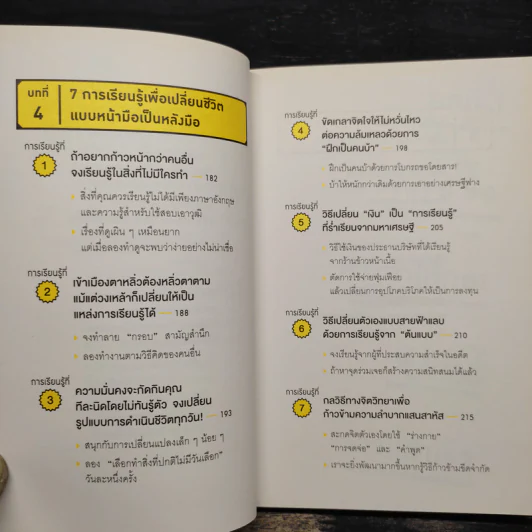 บทที่
4
7 การเรียนรู้เพื่อเปลี่ยนชีวิต
แบบหน้ามือเป็นหลังมือ
การเรียนรู้ที่
1
ถ้าอยากก้าวหน้ากว่าคนอื่น
จงเรียนรู้ในสิ่งที่ไม่มีใครทำ — 182
• สิ่งที่คุณควรเรียนรู้ไม่ได้มีเพียงภาษาอังกฤษ
และความรู้สำหรับใช้สอบเอาวุฒิ
• เรื่องที่ดูเผิน ๆ เหมือนยาก
แต่เมื่อลองทำดูจะพบว่าง่ายอย่างไม่น่าเชื่อ
การเรียนรู้ที่
2
เข้าเมืองตาหลิ่วต้องหลิ่วตาตาม
แม้แต่วงเหล้าก็เปลี่ยนให้เป็น
แหล่งการเรียนรู้ได้ — 188
• จงทำลาย “กรอบ” สามัญสำนึก
• ลองทำงานตามวิธีคิดของคนอื่น
การเรียนรู้ที่
3
ความมั่นคงจะกัดกินคุณ
ทีละนิดโดยไม่ทันรู้ตัว จงเปลี่ยน
รูปแบบการดำเนินชีวิตทุกวัน! — 193
• สนุกกับการเปลี่ยนแปลงเล็ก ๆ น้อย ๆ
• ลอง “เลือกทำสิ่งที่ปกติไม่มีวันเลือก”
วันละหนึ่งครั้ง
การเรียนรู้ที่
4
ขัดเกลาจิตใจให้ไม่หวั่นไหว
ต่อความล้มเหลวด้วยการ
“ฝึกเป็นคนบ้า” — 198
• ฝึกเป็นคนบ้าด้วยการโบกรถขอโดยสาร!
• บ้าให้หนักกว่าเดิมด้วยการเอาอย่างเศรษฐีฟาง
การเรียนรู้ที่
5
วิธีเปลี่ยน “เงิน” เป็น “การเรียนรู้”
ที่ร่ำเรียนจากมหาเศรษฐี — 205
• วิธีใช้เงินของประธานบริษัทที่ได้เรียนรู้
จากร้านข้าวหน้าเนื้อ
• ตัดการใช้จ่ายฟุ่มเฟือย
แล้วเปลี่ยนการอุปโภคบริโภคให้เป็นการลงทุน
การเรียนรู้ที่
6
วิธีเปลี่ยนตัวเองแบบสายฟ้าแลบ
ด้วยการเรียนรู้จาก “ต้นแบบ” — 210
• จงเรียนรู้จากผู้ที่ประสบความสำเร็จในอดีต
• ถ้าหาจุดร่วมเจอก็สร้างความสนิทสนมได้แล้ว
การเรียนรู้ที่
7
กลวิธีทางจิตวิทยาเพื่อ
ก้าวข้ามความลำบากแสนสาหัส — 215
• สะกดจิตตัวเองโดยใช้ “ร่างกาย”
“การจดจ่อ” และ “คำพูด”
• เราจะยิ่งพัฒนามากขึ้นหากรู้วิธีก้าวข้ามขีดจำกัด